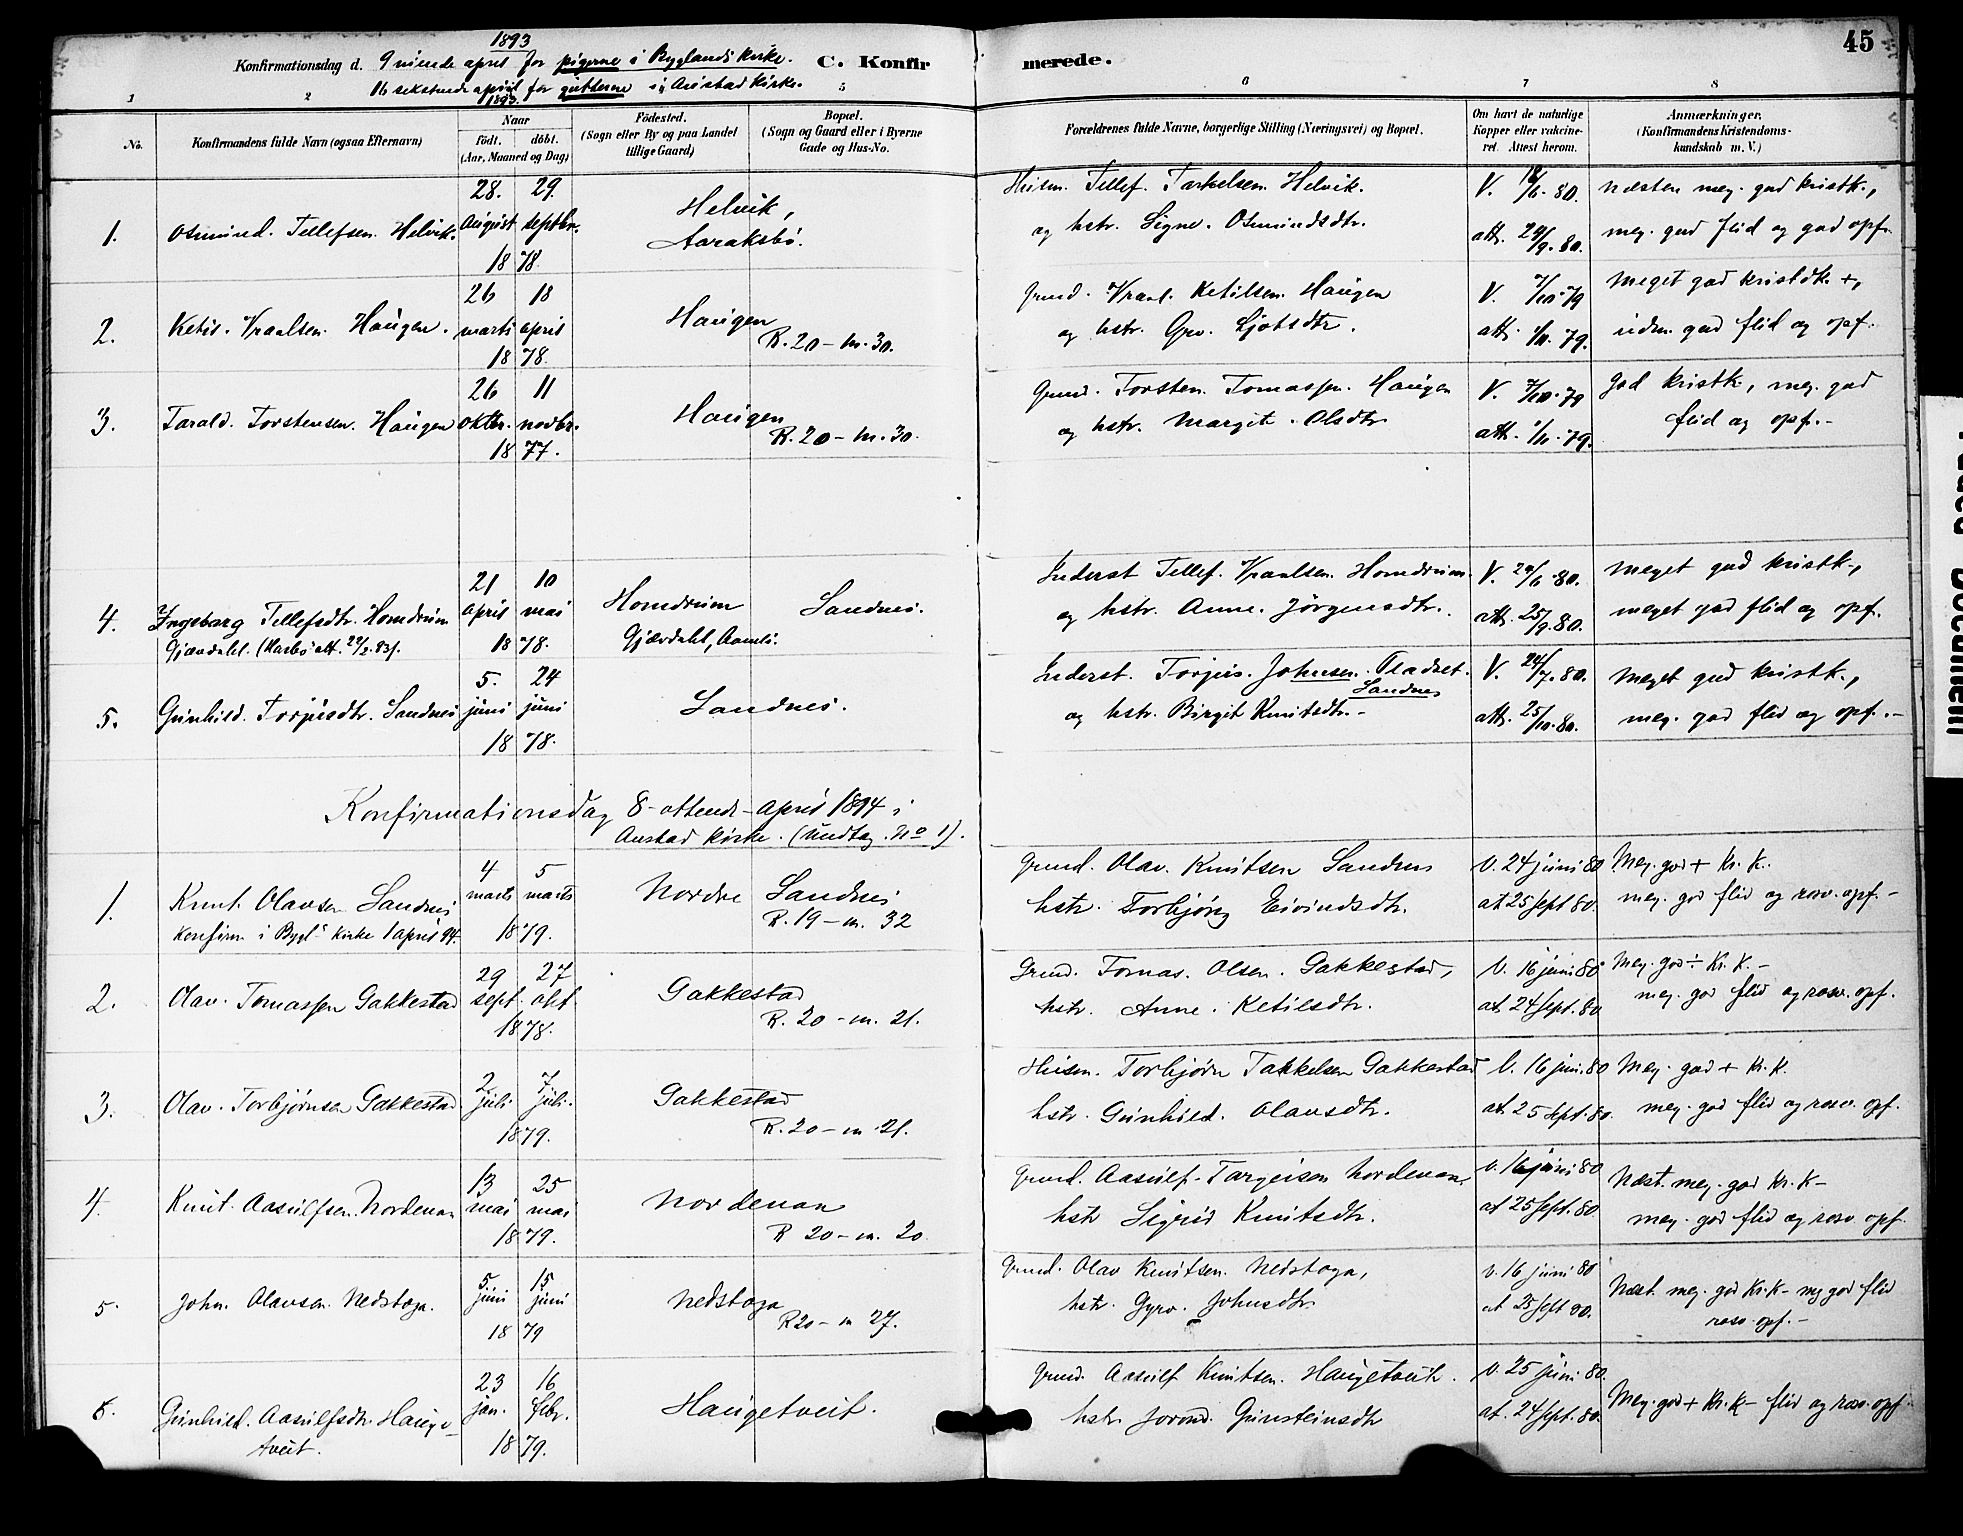 1893
Konfirmationsdag d. 9 niende april for pigerne i Byglands kirke. C. Konfir merede. 45
16 sekstende april for gutterne i Austad kirke.
1893.
1 2 5 6 7 8
No. Konfirmandens fulde Navn (ogsaa Efternavn) Naar født. døbt. (Aar, Maaned og Dag) Fødested. (Sogn eller By og paa Landet tillige Gaard) Bopæl. (Sogn og Gaard eller i Byerne Gade og Hus-No. Forældrenes fulde Navne, borgerlige Stilling (Næringsvei) og Bopæl. Om havt de naturlige Kopper eller vakcineret. Attest herom. Anmærkninger. (Konfirmandens Kristendomskundskab m. V.)
28. 29. Helvik, Husm. Tellef. Tarkelsen. Helvik. V. 18/6. 80. næsten meg. god kristk.,
1. Osmund. Tellefsen. Helvik. August septbr. Aaraksbø. og hstr. Signe. Osmundsdtr. att. 29/9. 80. meg. god flid og god opf.
18 78.
26 18 Grund. Vraal. Ketilsen. Haugen V. 7/10. 79 meget god kristdk. +,
2. Ketil. Vraalsen. Haugen. marts april Haugen R. 20 - m. 30. og hstr. Gro. Ljotsdtr. att. 1/11. 79. udm. god flid og opf.
18 78.
26 11 Grund. Torsten. Tomassen. Haugen V. 7/10. 79 god kristk., meg. god
3. Tarald. Torstensen. Haugen oktbr. novbr. Haugen R. 20 - m. 30. og hstr. Margit. Olsdtr. att. 1/11. 79. flid og opf.-
18 77.
21 10 Homdrum Sandnes. Inderst Tellef. Vraalsen. Homdrum. V. 29/6. 80. meget god kristk.,
4. Ingeborg Tellefsdtr. Homdrum april mai Gjøvdal, Aamli. og hstr. Anne. Jørgensdtr. att. 25/9. 80. meget god flid og opf.
Gjøvdal. 18 78.
5. 24 Inderst. Torjus. Johnsen. Pladset. V. 24/7. 80. meget god kristk.,
Sandnes
5. Gunhild. Torjusdtr. Sandnes juni juni Sandnes. og hstr. Birgit Knutsdtr.- att. 25/10. 80. meg. god flid og opf.-
18 78.
Konfirmationsdag 8 - ottende - april 1894 i
Austad kirke. (undtag. No 1).
4 5 Grund. Olav. Knutsen Sandnes V. 24 juni 80 Meg. god + Kr. K.
1. Knut. Olavsen Sandnes marts marts Nordre Sandnes R. 19 - m. 32 hstr. Torbjørg Eivindsdtr. at 25 sept 80. meg. god flid og rosv. opf.-
Konfirm i Bygl.s kirke 1 april 94. 18 79.
29 27 Grund. Tomas. Olsen. Gakkestad, V. 16 juni 80 Meg. god ÷ Kr. K.-
2. Olav. Tomassen Gakkestad sept. okt Gakkestad R. 20 - m. 21. hstr. Anne. Ketilsdtr. at 24 sept. 80 meg. god flid og rosv. opf.
18 78.
2 7 Husm. Torbjørn Takkelsen Gakkestad V. 16 juni 80 Meg. god + Kr. K.
3. Olav. Torbjørnsen Gakkestad juli juli. Gakkestad R. 20 - m 21. hstr. Gunhild. Olavsdtr. at 25 sept. 80. meg. god flid og rosv. opf.
18 79.
13 25 Grund. Aasulf. Targeisen Nordenaa. V. 16 juni 80 Næst. meg. god Kr. K-
4. Knut. Aasulfsen. Nordenaa mai mai Nordenaa R 20 - m. 20 hstr Sigrid Knutsdtr. at 25 sept. 80. meg. god flid og rosv. opf.
18 79.
5. 15 Grund. Olav Knutsen. Nedstoga, V. 16 juni 80
5. John. Olavsen. Nedstoga. juni juni Nedstoga R 20 - m 27. hstr. Gyro. Johnsdtr. at 25 sept 80. Næst. meg. god Kr. K - mg god flid
18 79 rosv. opf.-
23 16 Grund. Aasulf Knutsen. Haugetveit. V. 25 juni 80.
6. Gunhild. Aasulfsdtr. Hauge- jan. febr. Haugetveit. hstr. Jorond. Gunsteinsdtr at. 24 sept. 80. Meg. god + Kr. K - flid og rosv. opf.
tveit. 18 79.